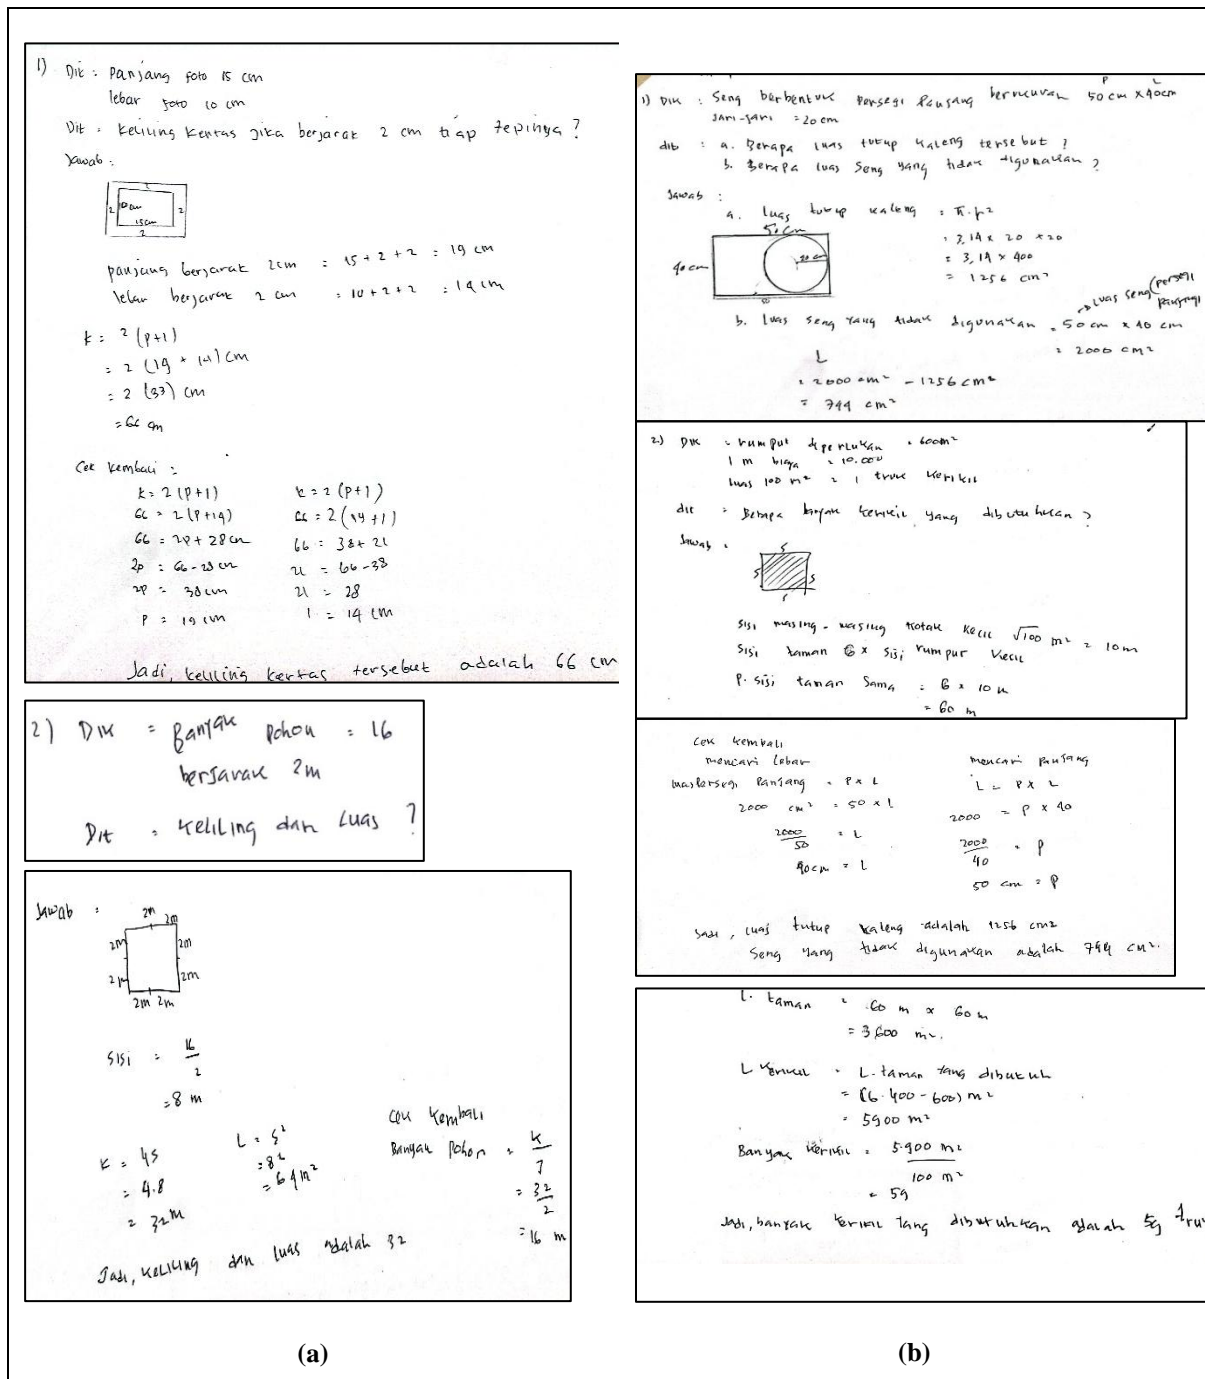 1) Dik : Panjang foto 15 cm
lebar foto 10 cm
Dit : Keliling kertas jika berjarak 2 cm tiap tepinya ?
Jawab :
2
2 10 cm 2
15 cm
2
panjang berjarak 2cm = 15 + 2 + 2 = 19 cm
lebar berjarak 2 cm = 10 + 2 + 2 = 14 cm
k = 2 (p+l)
= 2 (19 + 14) cm
= 2 (33) cm
= 66 cm
Cek kembali :
k = 2 (p+l) k = 2 (p+l)
66 = 2 (p+14) 66 = 2 (19+l)
66 = 2p + 28 cm 66 = 38 + 2l
2p = 66-28 cm 2l = 66-38
2p = 38 cm 2l = 28
p = 19 cm l = 14 cm
Jadi, keliling kertas tersebut adalah 66 cm
2) Dik = Banyak pohon = 16
berjarak 2m
Dit = keliling dan luas ?
Jawab :
2m 2m
2m 2m
2m 2m
2m 2m
sisi = 16/2
= 8 m
k = 4s L = s²
= 4.8 = 8²
= 32 m = 64 m²
Cek kembali
Banyak pohon = k/J
= 32/2
= 16 m
Jadi, keliling dan luas adalah 32
(a)
1) Dik : Seng berbentuk persegi panjang berukuran 50 cm x 40 cm
P L
Jari-jari = 20 cm
dit : a. Berapa luas tutup kaleng tersebut ?
b. Berapa luas seng yang tidak digunakan ?
Jawab :
a. Luas tutup kaleng = π.r²
= 3,14 x 20 x 20
= 3,14 x 400
= 1256 cm²
50 cm
40 cm
20 cm
b. Luas seng yang tidak digunakan = 50 cm x 40 cm
luas seng (persegi panjang)
= 2000 cm²
L
= 2000 cm² - 1256 cm²
= 744 cm²
2) Dik = rumput diperlukan = 600m²
1 m biaya = 10.000
luas 100 m² = 1 truk kerikil
dit = Berapa banyak kerikil yang dibutuhkan ?
Jawab =
s
s s
s
sisi masing-masing kotak kecil √100 m² = 10 m
sisi taman 6 x sisi rumput kecil
P. sisi taman sama = 6 x 10 m
= 60 m
Cek kembali
mencari lebar mencari panjang
Panjang = P x L L = P x L
2000 cm² = 50 x L 2000 = P x 40
2000/50 = L 2000/40 = P
40 cm = L 50 cm = P
Jadi, luas tutup kaleng adalah 1256 cm2
Seng yang tidak digunakan adalah 744 cm².
L. taman = 60 m x 60 m
= 3.600 m².
L kerikil = L. taman yang dibutuh
= (6.400 - 600) m²
= 5900 m²
Banyak kerikil = 5.900 m²/100 m²
= 59
Jadi, banyak kerikil yang dibutuhkan adalah 59 tru
(b)